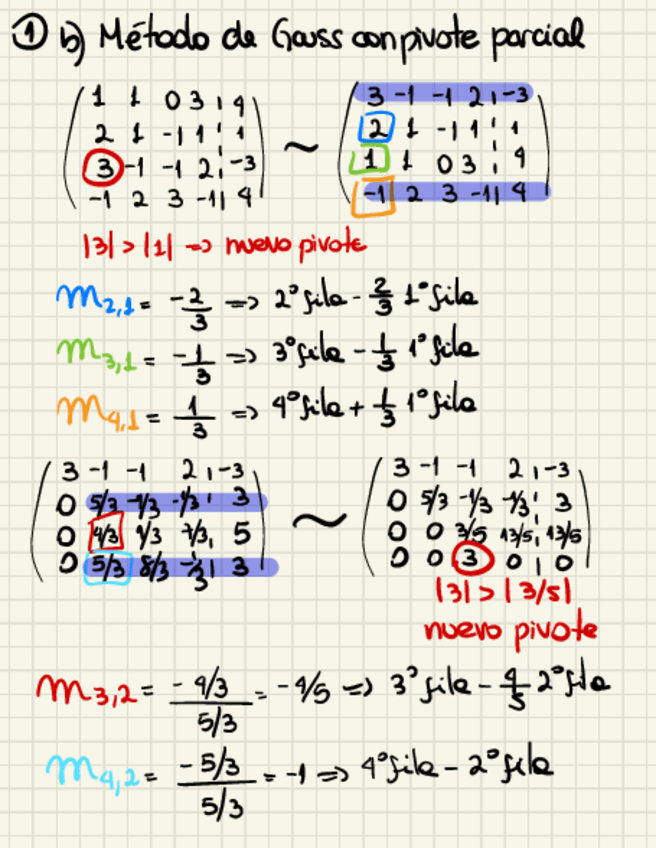 ① b) Método de Gauss con pivote parcial
1 1 0 3 | 4
2 1 -1 1 | 1
3 -1 -1 2 | -3
-1 2 3 -1 | 4
~
3 -1 -1 2 | -3
2 1 -1 1 | 1
1 1 0 3 | 4
-1 2 3 -1 | 4
|3| > |1| => nuevo pivote
m2,1 = -2/3 => 2º fila - 2/3 1º fila
m3,1 = -1/3 => 3º fila - 1/3 1º fila
m4,1 = 1/3 => 4º fila + 1/3 1º fila
3 -1 -1 2 | -3
0 5/3 -1/3 -1/3 | 3
0 4/3 1/3 7/3 | 5
0 5/3 8/3 -1/3 | 3
~
3 -1 -1 2 | -3
0 5/3 -1/3 -1/3 | 3
0 0 3/5 13/5 | 13/5
0 0 3 0 | 0
|3| > |3/5|
nuevo pivote
m3,2 = -4/3 / 5/3 = -4/5 => 3º fila - 4/5 2º fila
m4,2 = -5/3 / 5/3 = -1 => 4º fila - 2º fila